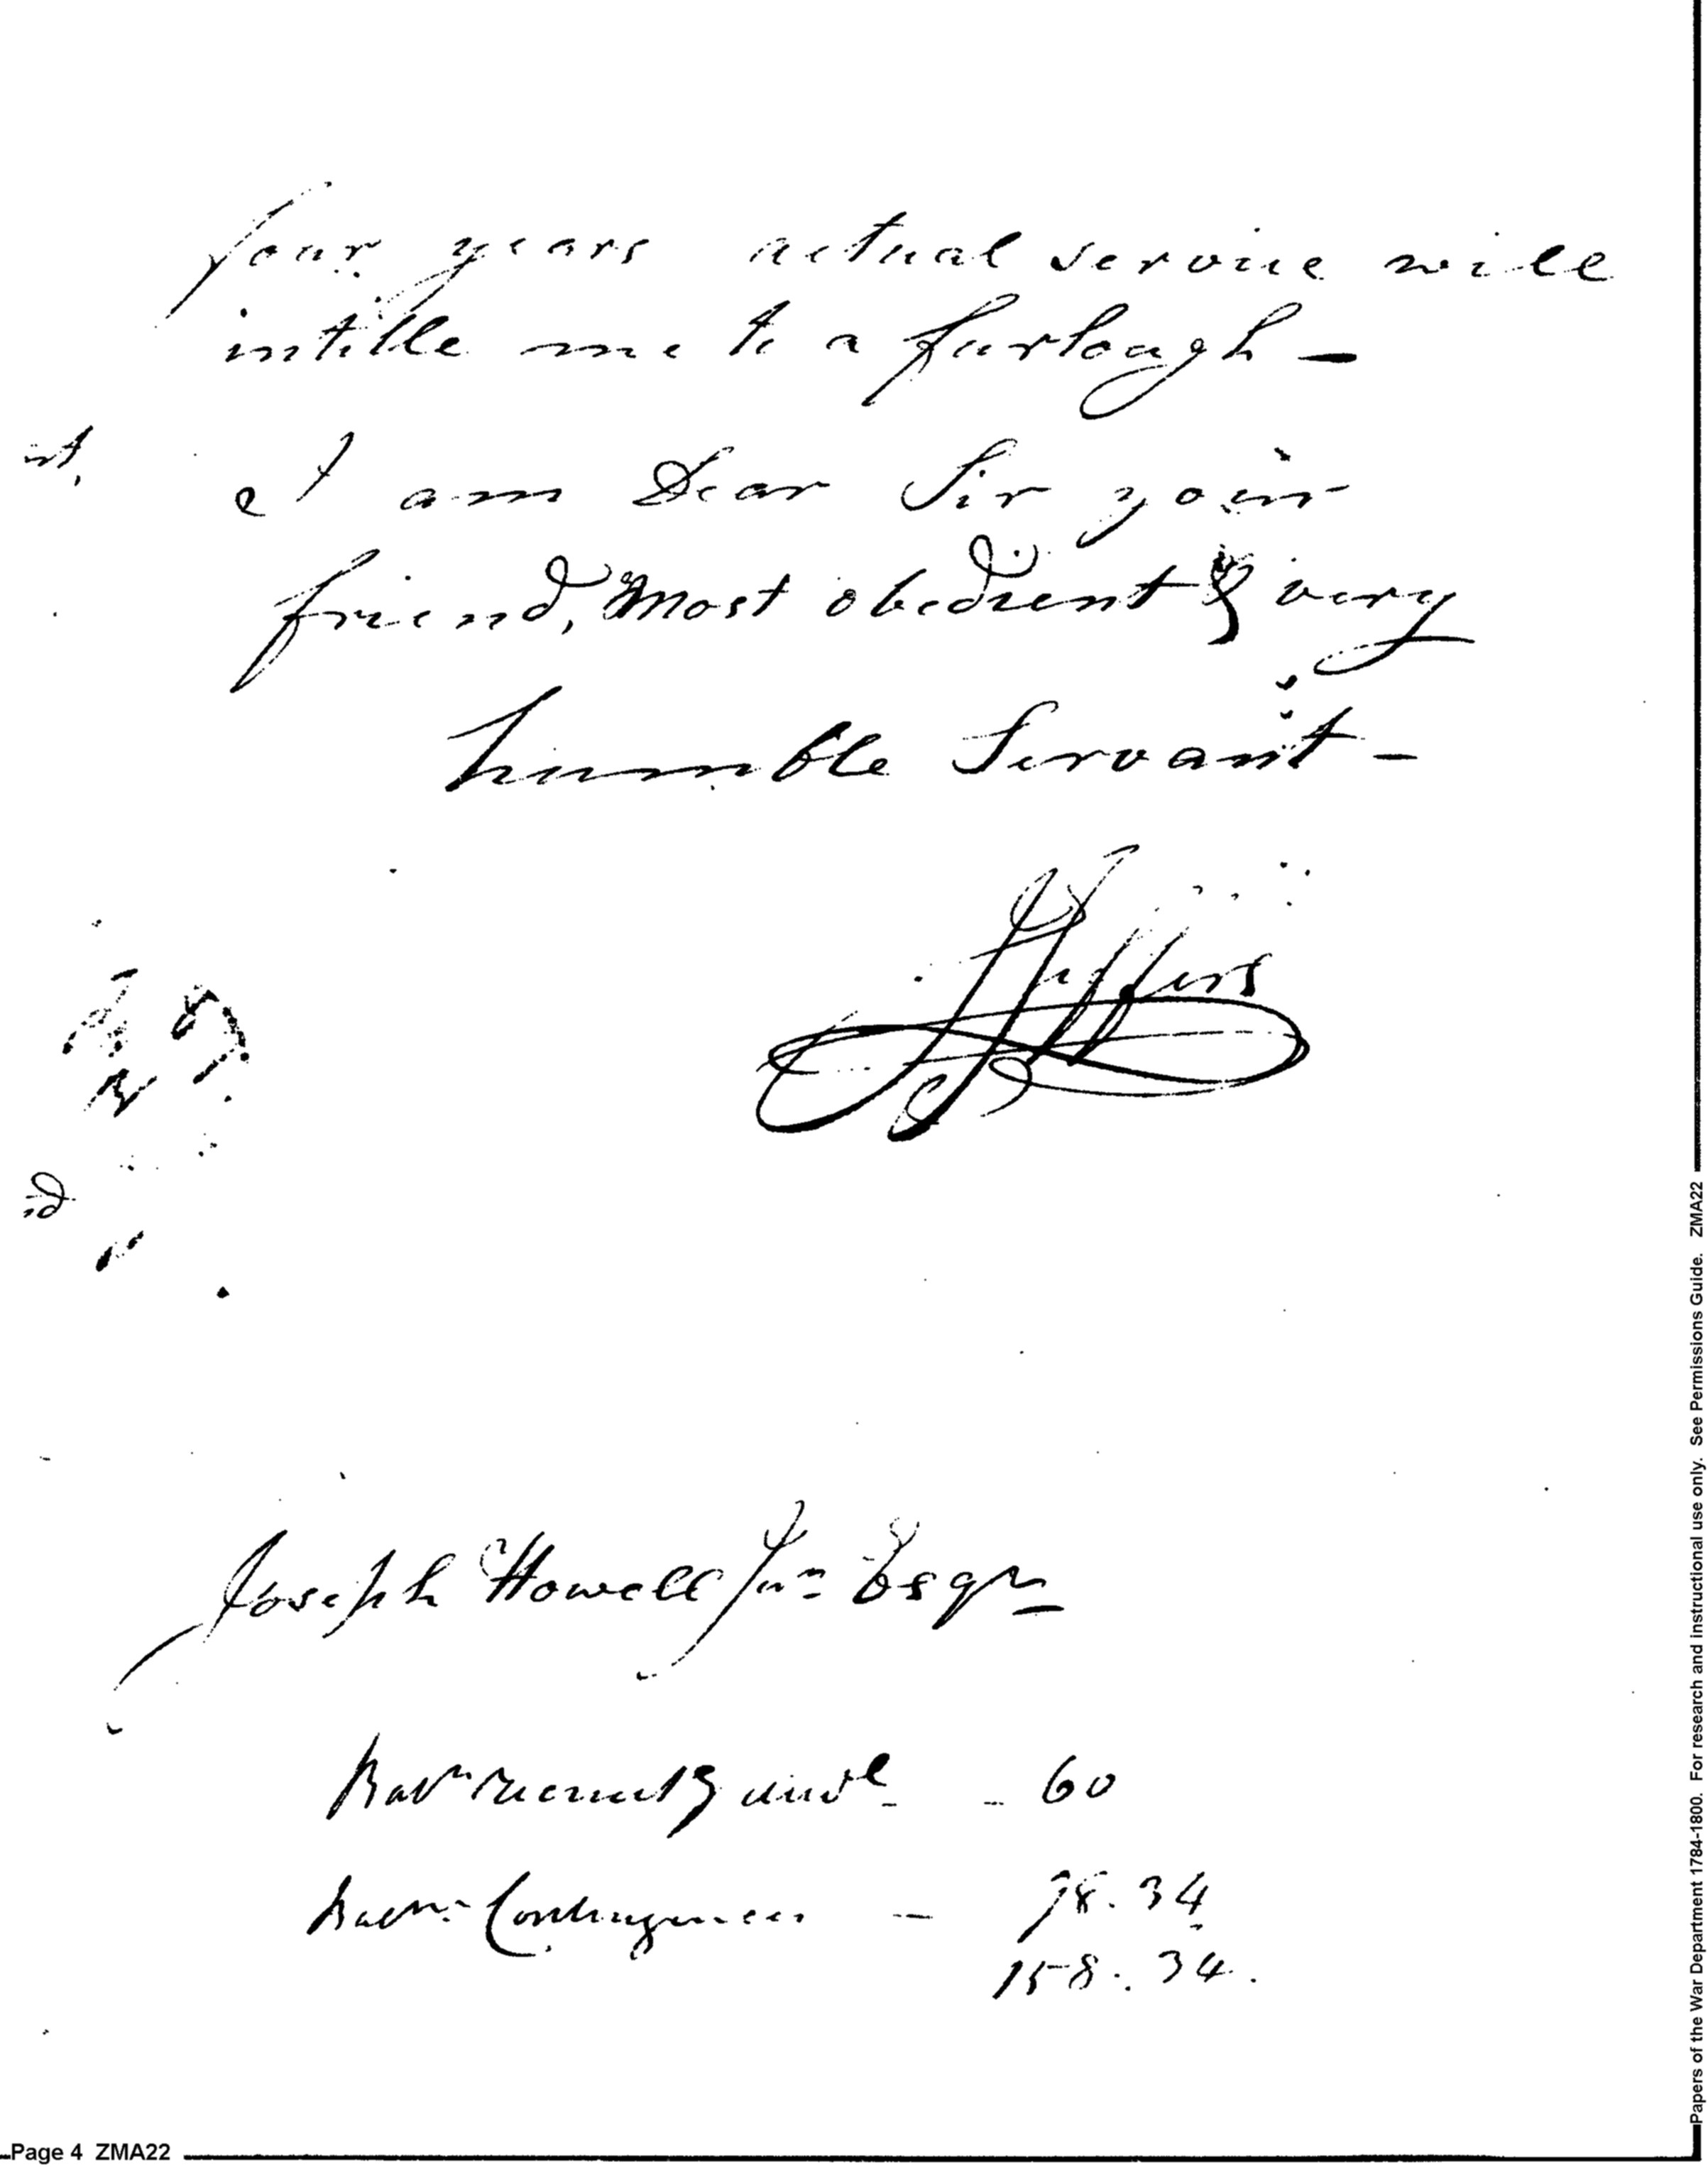 four years actual service will
intitle me to a furlough —
I am Dear Sir your
friend, Most obedient & very
humble Servant —
Jeffers
Joseph Howell Junr Esqr
60
Contingencies — 98.34
158.34.
Page 4 ZMA22
Papers of the War Department 1784-1800. For research and instructional use only. See Permissions Guide. ZMA22